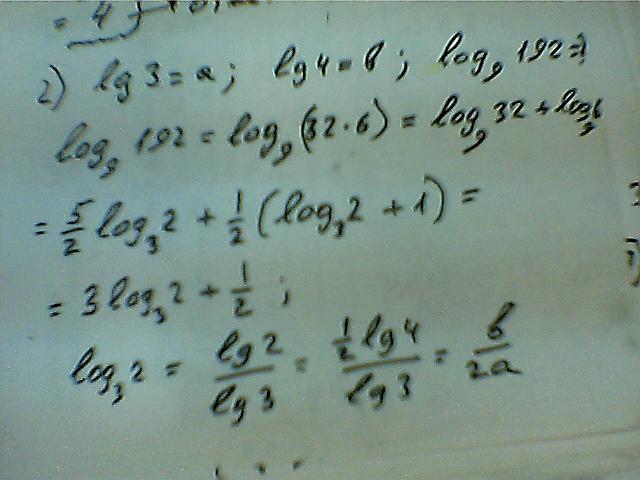 = 4
2) lg 3 = a; lg 4 = b; log₉ 192 = ?
log₉ 192 = log₉ (32 · 6) = log₉ 32 + log₉ 6
= 5/2 log₃ 2 + 1/2 (log₃ 2 + 1) =
= 3 log₃ 2 + 1/2 ;
log₃ 2 = lg 2 / lg 3 = 1/2 lg 4 / lg 3 = b / 2a